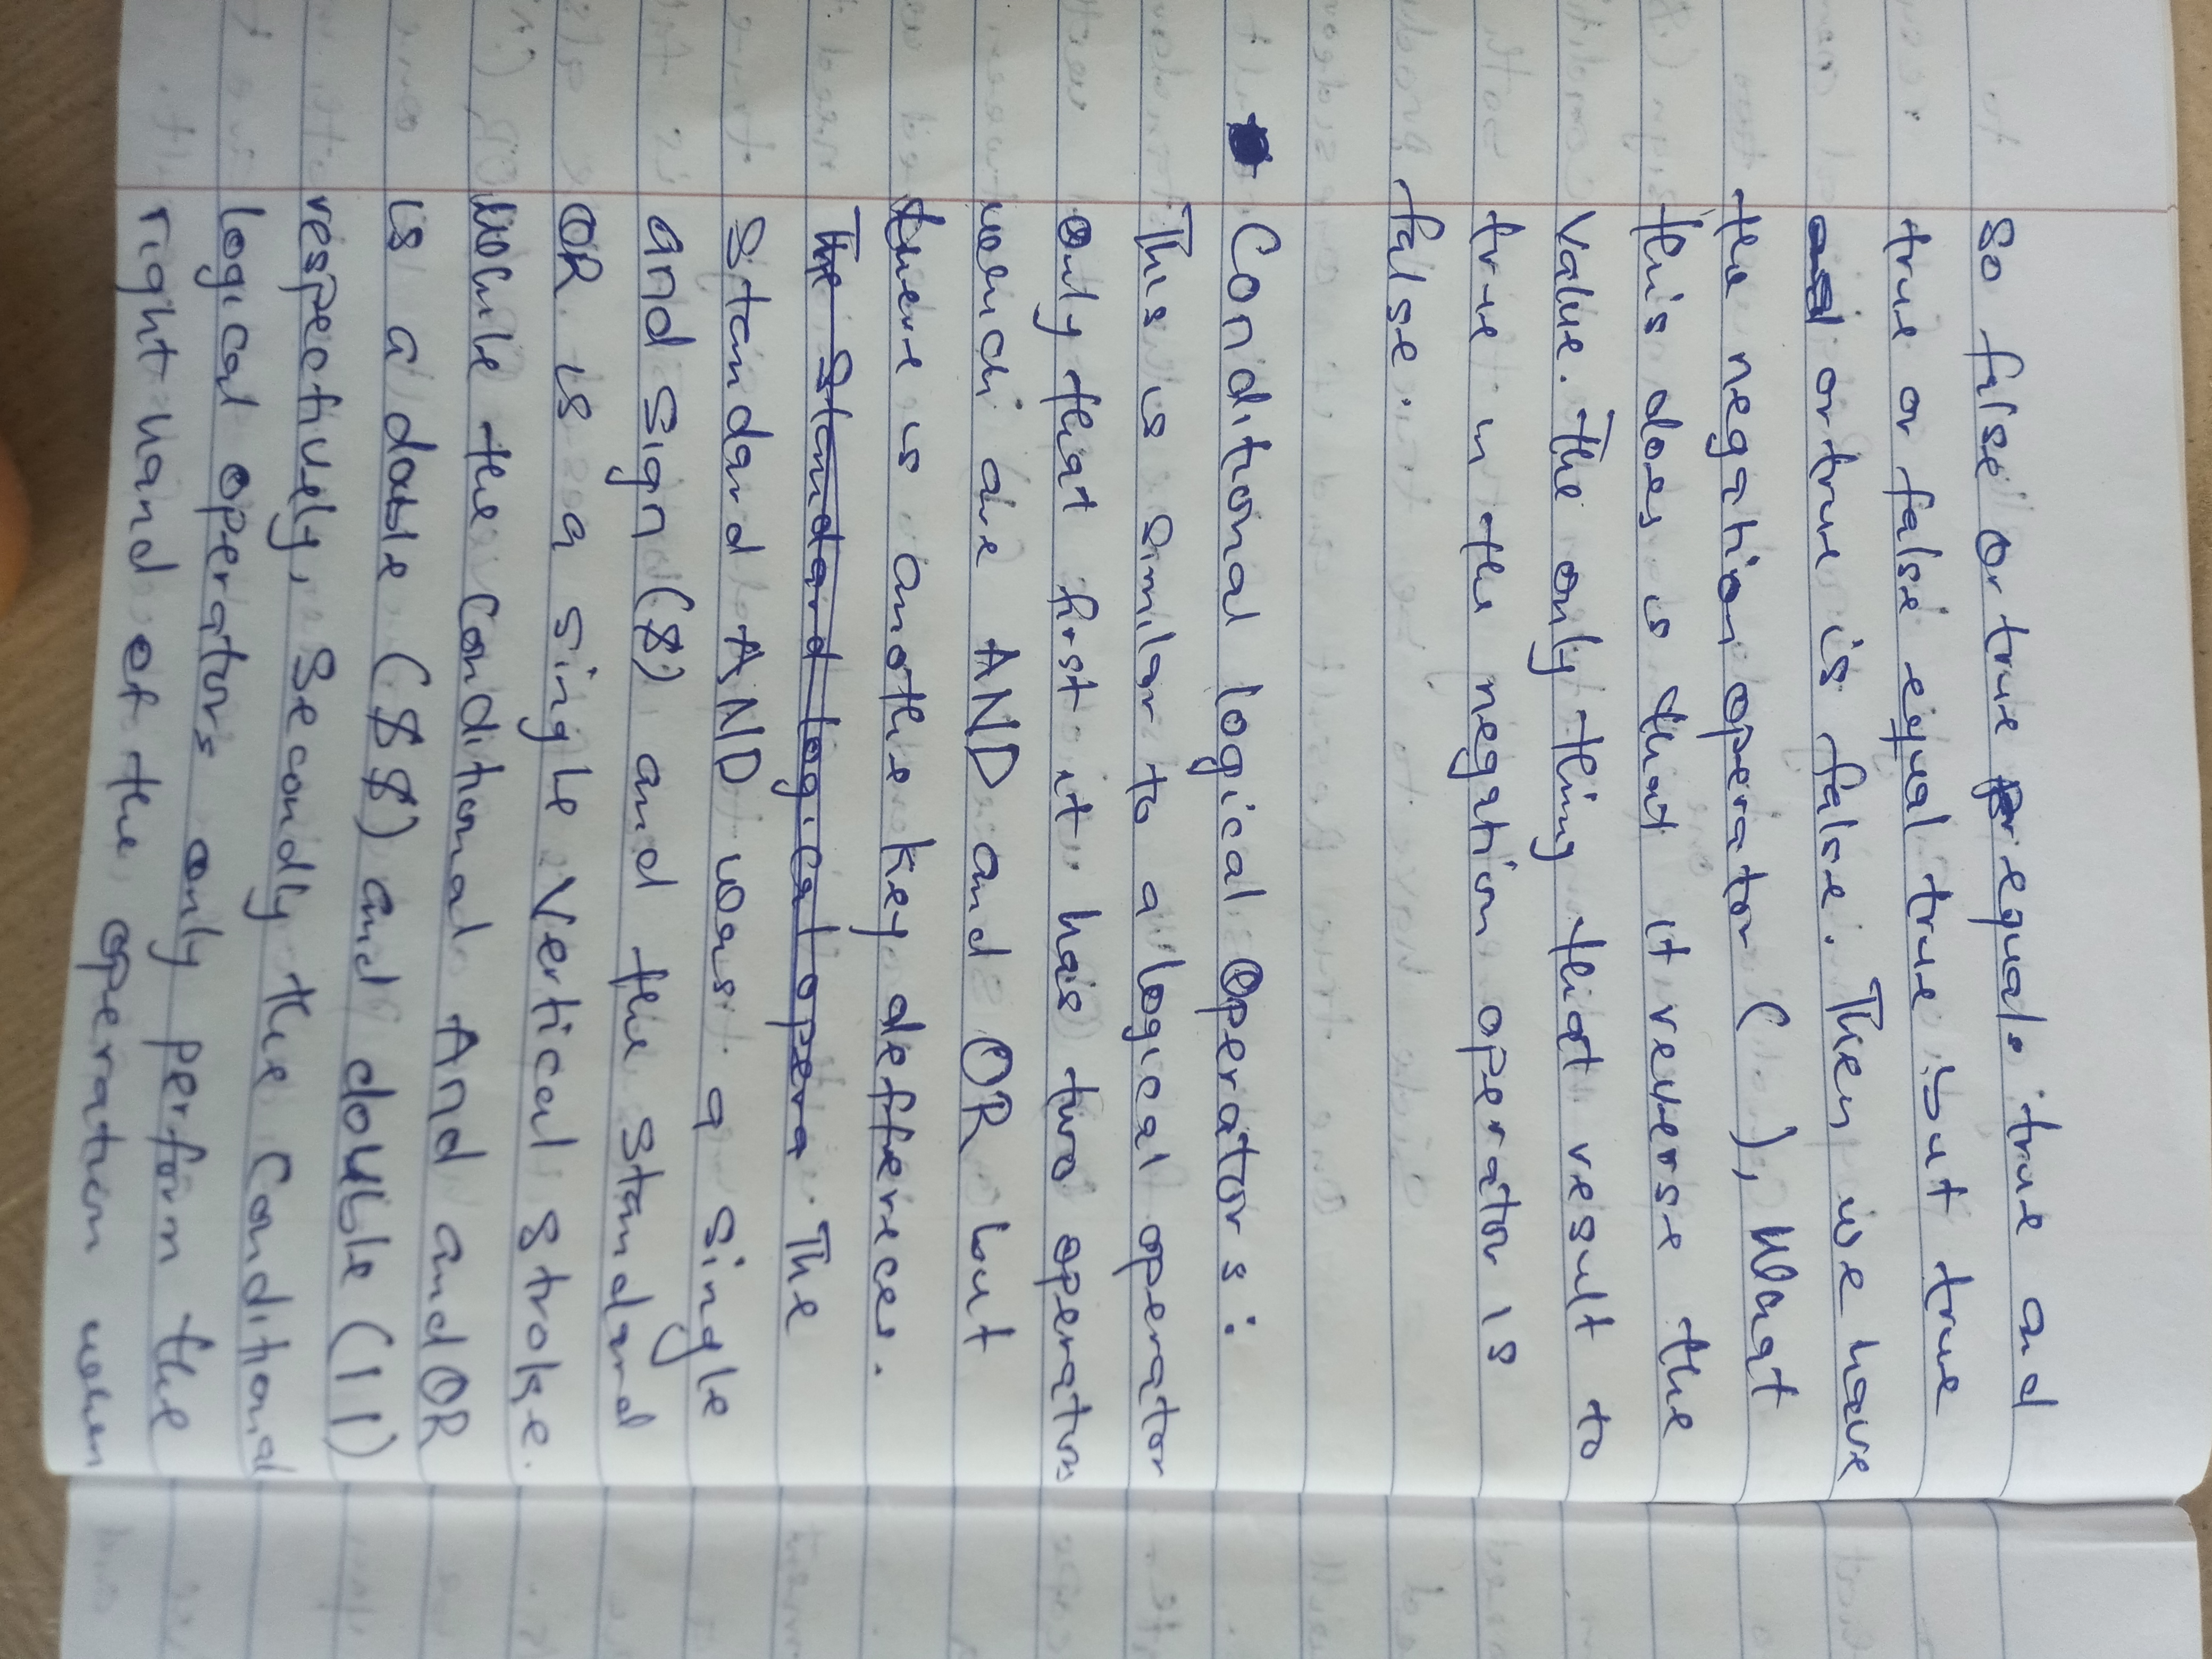 So false or true equals true and
true or false equal true but true
or true is false. Then we have
the negation operator ( ), What
this does is that it reverse the
Value. The only thing that result to
true in the negation operator is
false.
Conditional logical Operators:
This is Similar to a logical operator
only that first it has two operators
which are AND and OR but
there is another key defferences.
The Standard logical opera. The
Standard AND was a single
and sign (&) and the standard
OR is a single Vertical stroke.
While the Conditional And and OR
is a doble (&&) and double (||)
respectively, Secondly the Conditional
logical operators only perform the
right hand of the operation when